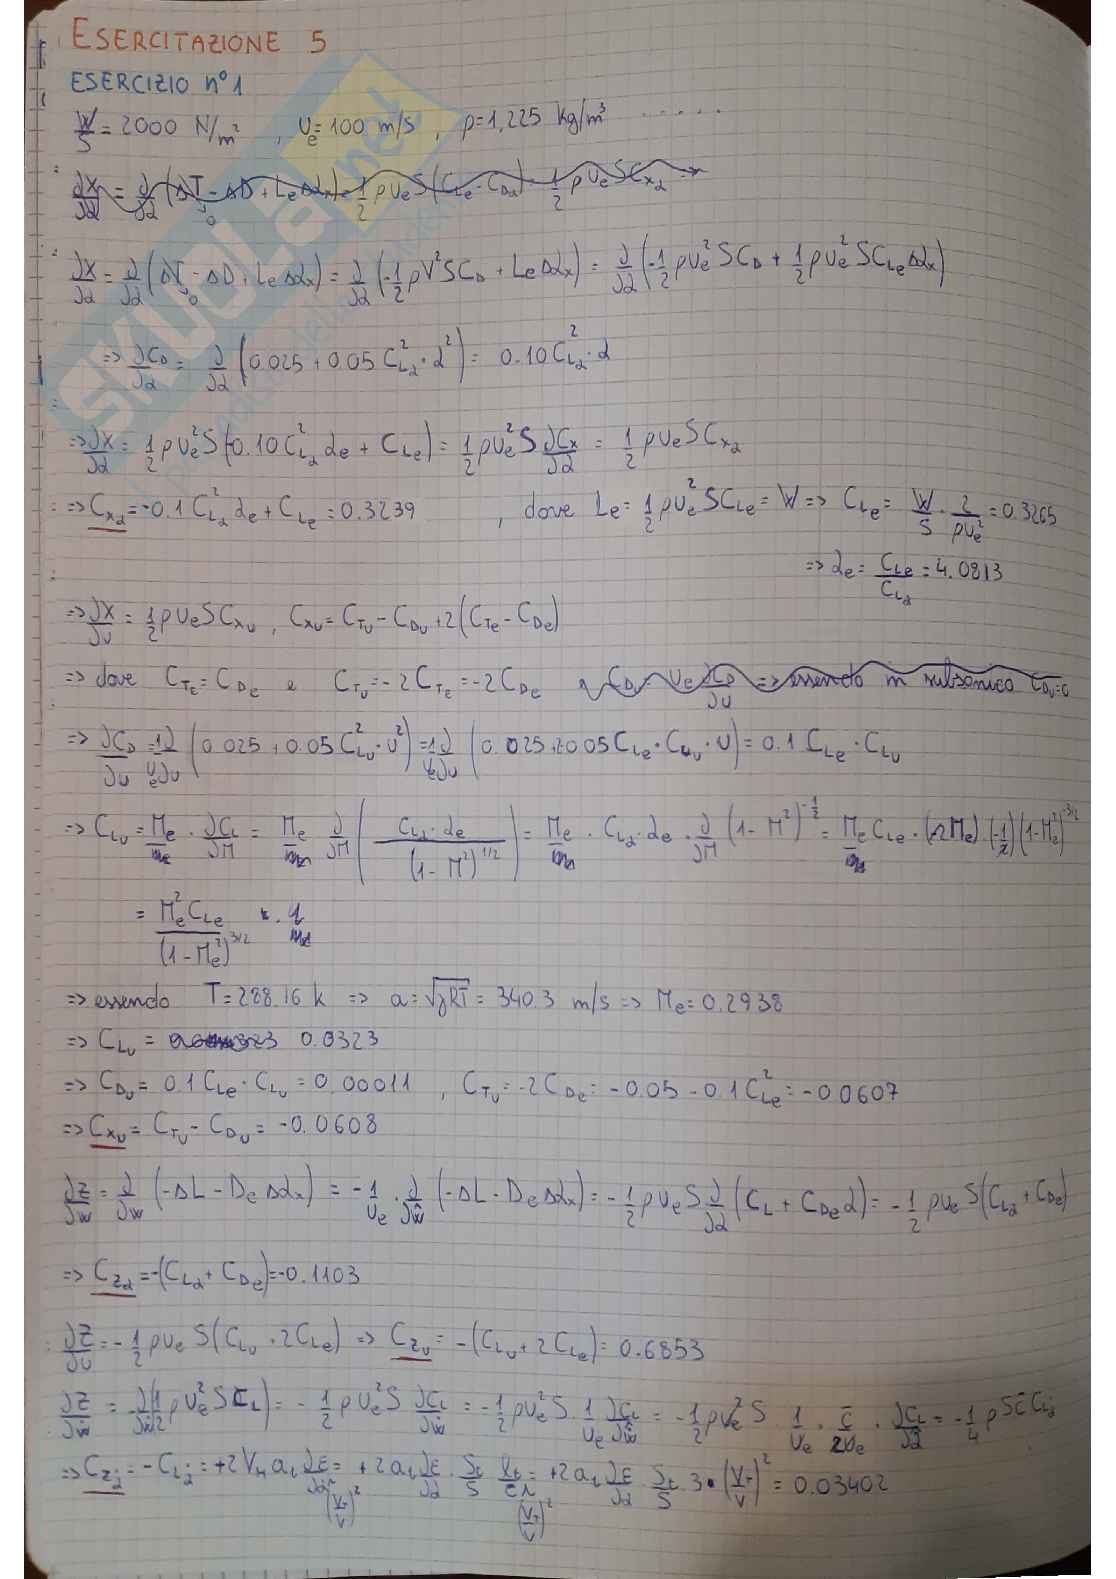 ESERCITAZIONE 5
ESERCIZIO n°1
W/S = 2000 N/m², Ue = 100 m/s, ρ = 1,225 Kg/m³ .....
∂X/∂α = ∂/∂α (ΔT - ΔD + Le Δαx) = 1/2 ρUe S(CLe - CDα) = 1/2 ρUe S Cxα =>
∂X/∂α = ∂/∂α (ΔT - ΔD + Le Δαx) = ∂/∂α (-1/2 ρV² S CD + Le Δαx) = ∂/∂α (-1/2 ρUe² S CD + 1/2 ρUe² S CLe Δαx)
=> ∂CD/∂α = ∂/∂α (0.025 + 0.05 CLα² · α²) = 0.10 CLα² · α
=> ∂X/∂α = 1/2 ρUe² S (-0.10 CLα² αe + CLe) = 1/2 ρUe² S ∂Cx/∂α = 1/2 ρUe S Cxα
=> Cxα = -0.1 CLα² αe + CLe = 0.3239 , dove Le = 1/2 ρUe² S CLe = W => CLe = W/S · 2/ρUe² = 0.3265
=> αe = CLe/CLα = 4.0813
=> ∂X/∂U = 1/2 ρUe S CxU , CxU = CTU - CDU + 2(CTe - CDe)
=> dove CTe = CDe e CTU = -2 CTe = -2 CDe e CD = Ue ∂CD/∂U => essendo in subsonico CDU = 0
=> ∂CD/∂U = 1/Ue ∂/∂U (0.025 + 0.05 CLU² · U²) = 1/Ue ∂/∂U (0.025 + 2·0.05 CLe · CLU · U) = 0.1 CLe · CLU
=> CLU = Me · ∂CL/∂M = Me ∂/∂M (CLα · αe / (1 - M²)^1/2) = Me · CLα · αe · ∂/∂M (1 - M²)^-1/2 = Me CLe · (-2Me) · (-1/2)(1 - Me²)^-3/2
= Me² CLe / (1 - Me²)^3/2
=> essendo T = 288.16 k => a = √γRT = 340.3 m/s => Me = 0.2938
=> CLU = 0.0323
=> CDU = 0.1 CLe · CLU = 0.00011 , CTU = -2 CDe = -0.05 - 0.1 CLe² = -0.0607
=> CxU = CTU - CDU = -0.0608
∂Z/∂w = ∂/∂w (-ΔL - De Δαx) = -1/Ue · ∂/∂ŵ (-ΔL - De Δαx) = -1/2 ρUe S ∂/∂α (CL + CDe α) = -1/2 ρUe S (CLα + CDe)
=> CZα = -(CLα + CDe) = -0.1103
∂Z/∂U = -1/2 ρUe S (CLU + 2CLe) => CZU = -(CLU + 2CLe) = 0.6853
∂Z/∂ẇ = -∂/∂ẇ (1/2 ρUe² S CL) = -1/2 ρUe² S ∂CL/∂ẇ = -1/2 ρUe² S · 1/Ue ∂CL/∂ŵ = -1/2 ρUe² S 1/Ue · c̄/2Ue · ∂CL/∂α̂ = -1/4 ρ S c̄ CLα̇
=> CZα̇ = -CLα̇ = +2 VH at ∂ε/∂α (VT/V)² = +2 at ∂ε/∂α · St/S lt/c̄ (VT/V)² = +2 at ∂ε/∂α · St/S · 3 · (VT/V)² = 0.03402